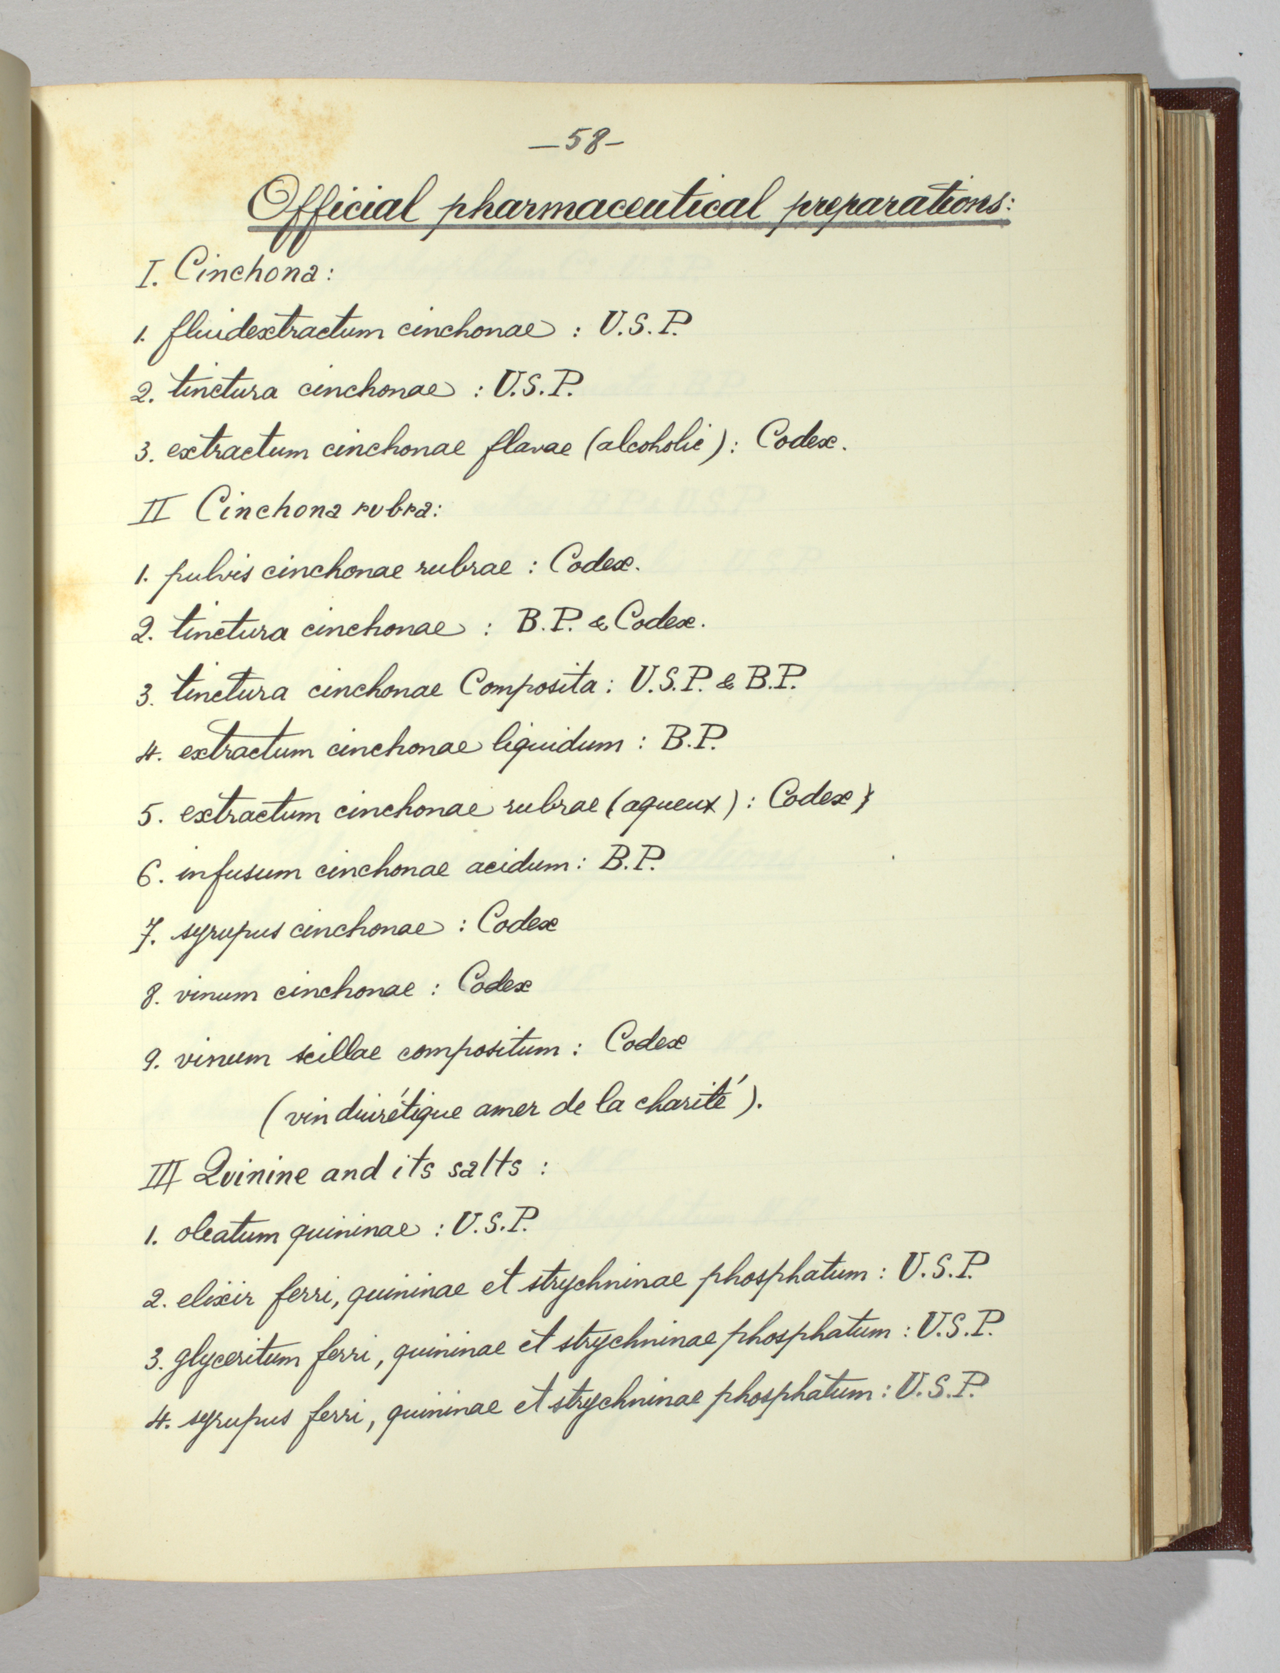 —58—
Official pharmaceutical preparations:
I. Cinchona:
1. fluidextractum cinchonae : U.S.P.
2. tinctura cinchonae : U.S.P.
3. extractum cinchonae flavae (alcoholic) : Codex.
II Cinchona rubra:
1. pulvis cinchonae rubrae : Codex.
2. tinctura cinchonae : B.P. & Codex.
3. tinctura cinchonae Composita : U.S.P. & B.P.
4. extractum cinchonae liquidum : B.P.
5. extractum cinchonae rubrae (aqueux) : Codex
6. infusum cinchonae acidum : B.P.
7. syrupus cinchonae : Codex
8. vinum cinchonae : Codex
9. vinum scillae compositum : Codex
(vin diurétique amer de la charité).
III Quinine and its salts :
1. oleatum quininae : U.S.P.
2. elixir ferri, quininae et strychninae phosphatum : U.S.P.
3. glyceritum ferri, quininae et strychninae phosphatum : U.S.P.
4. syrupus ferri, quininae et strychninae phosphatum : U.S.P.